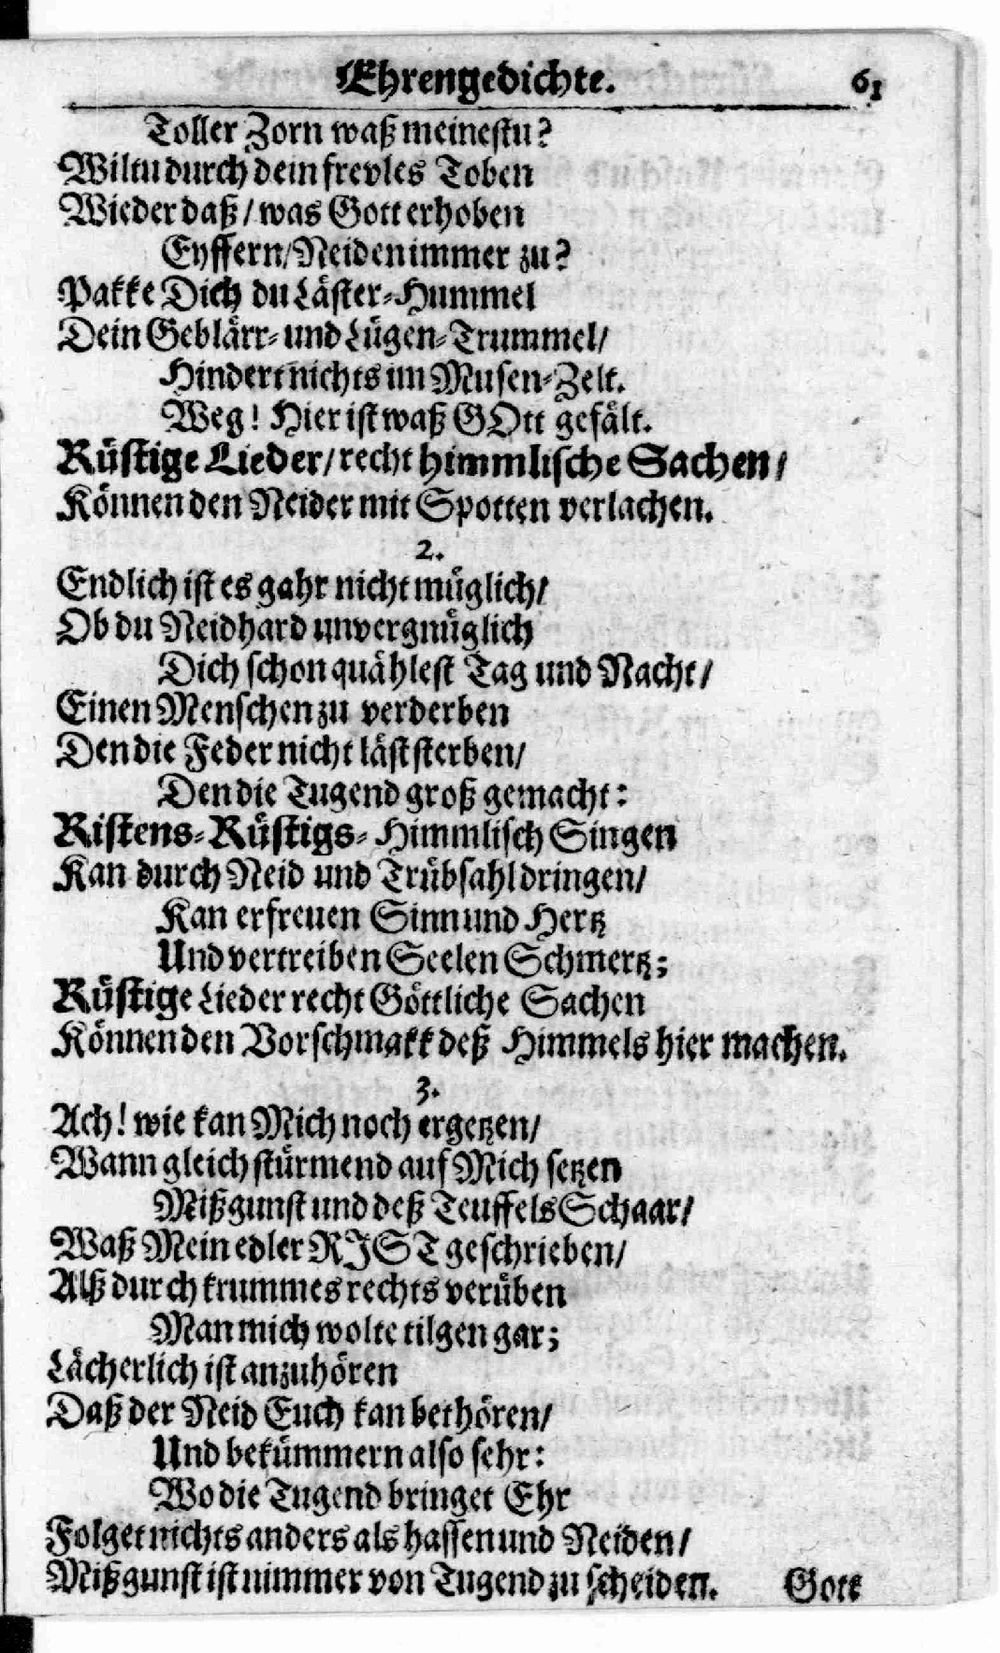 Ehrengedichte. 61
Toller Zorn waß meinestu?
Wiltu durch dein frevles Toben
Wieder daß / was Gott erhoben
Eyffern / Neiden immer zu?
Pakke Dich du Läster-Hummel
Dein Geblärr- und Lügen-Trummel /
Hindert nichts im Musen-Zelt.
Weg! Hier ist waß GOtt gefält.
Rüstige Lieder / recht himmlische Sachen /
Können den Neider mit Spotten verlachen.
2.
Endlich ist es gahr nicht müglich /
Ob du Neidhard unvergnüglich
Dich schon quählest Tag und Nacht /
Einen Menschen zu verderben
Den die Feder nicht läst sterben /
Den die Tugend groß gemacht:
Ristens-Rüstigs- Himmlisch Singen
Kan durch Neid und Trübsahl dringen /
Kan erfreuen Sinn und Hertz
Und vertreiben Seelen Schmertz;
Rüstige Lieder recht Göttliche Sachen
Können den Vorschmakk deß Himmels hier machen.
3.
Ach! wie kan Mich noch ergetzen /
Wann gleich stürmend auf Mich setzen
Mißgunst und deß Teuffels Schaar /
Waß Mein edler RIST geschrieben /
Alß durch krummes rechts verüben
Man mich wolte tilgen gar;
Lächerlich ist anzuhören
Daß der Neid Euch kan bethören /
Und bekümmern also sehr:
Wo die Tugend bringet Ehr
Folget nichts anders als hassen und Neiden /
Mißgunst ist nimmer von Tugend zu scheiden. Gott